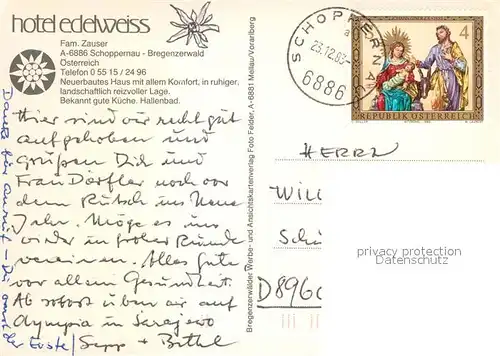 hotel edelweiss
Fam. Zauser
A-6886 Schoppernau - Bregenzerwald
Österreich
Telefon 0 55 15 / 24 96
Neuerbautes Haus mit allem Komfort, in ruhiger,
landschaftlich reizvoller Lage.
Bekannt gute Küche. Hallenbad.
Hier sind wir recht gut
aufgehoben und
Grüßen Dich und
Frau Dörfler noch vor
dem Rutsch ins Neue
Jahr. Möge es uns
wieder in froher Runde
vereinen. Alles Gute
vor allem Gesundheit.
Ab sofort üben wir auf
Olympia in Sarajewo
Sepp +
Bregenzerwälder Werbe- und Ansichtskartenverlag Foto Felder, A-6881 Mellau/Vorarlberg
SCHOPPERNAU
23.12.83
6886
4
REPUBLIK ÖSTERREICH
HERRN
WILL
SCHÜ
D896
privacy protection
Datenschutz